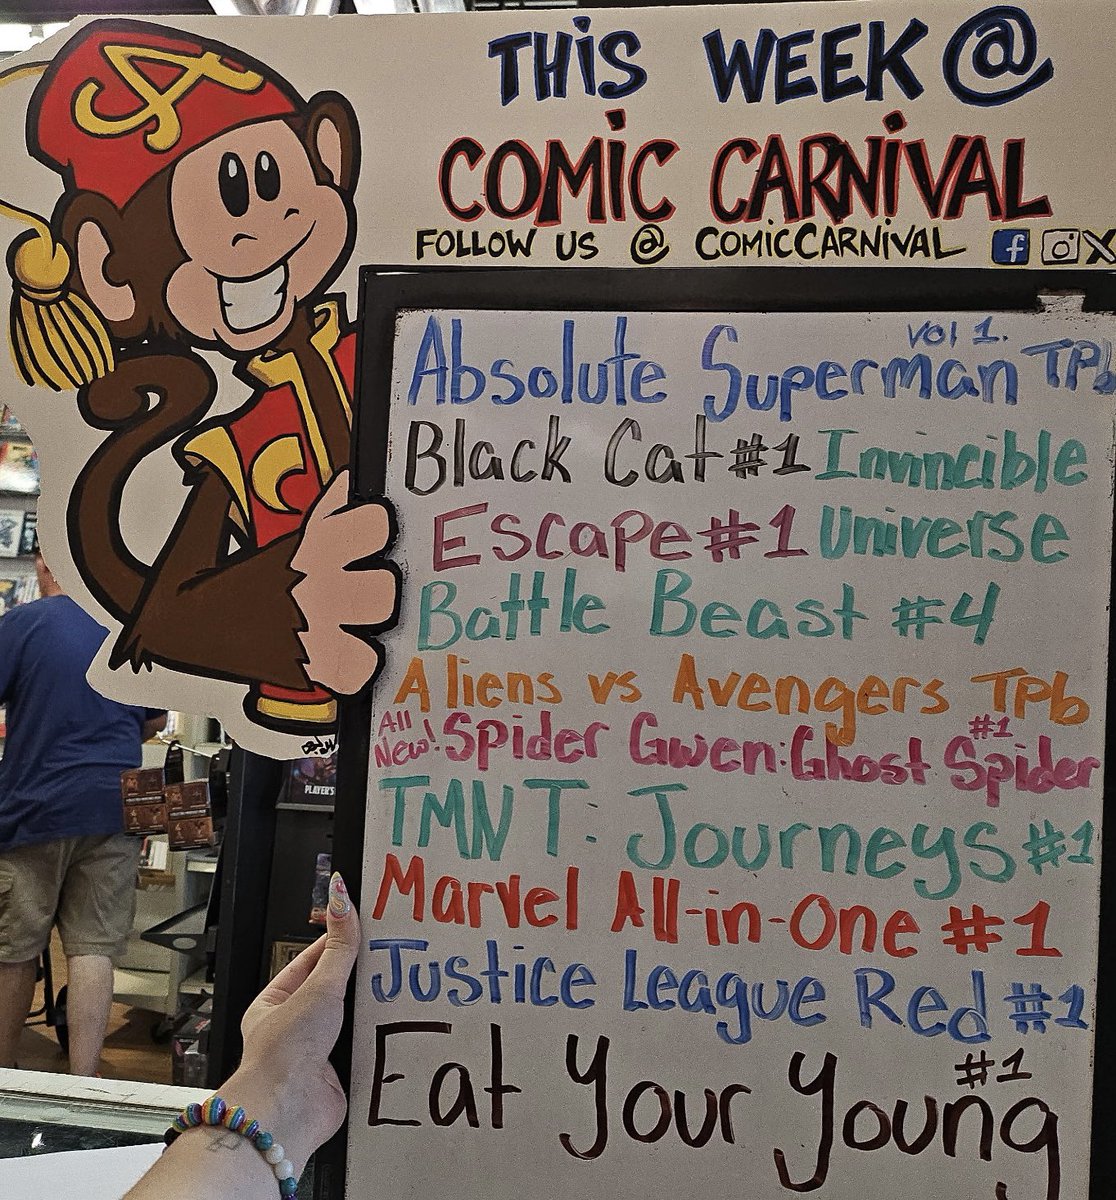 THIS WEEK @
COMIC CARNIVAL
FOLLOW US @ COMICCARNIVAL
Absolute Superman vol 1. TPb
Black Cat #1 Invincible
Escape #1 Universe
Battle Beast #4
Aliens vs Avengers TPb
All New! Spider Gwen: Ghost Spider #1
TMNT: Journeys #1
Marvel All-in-One #1
Justice League Red #1
Eat Your Young #1
PLAYER'S